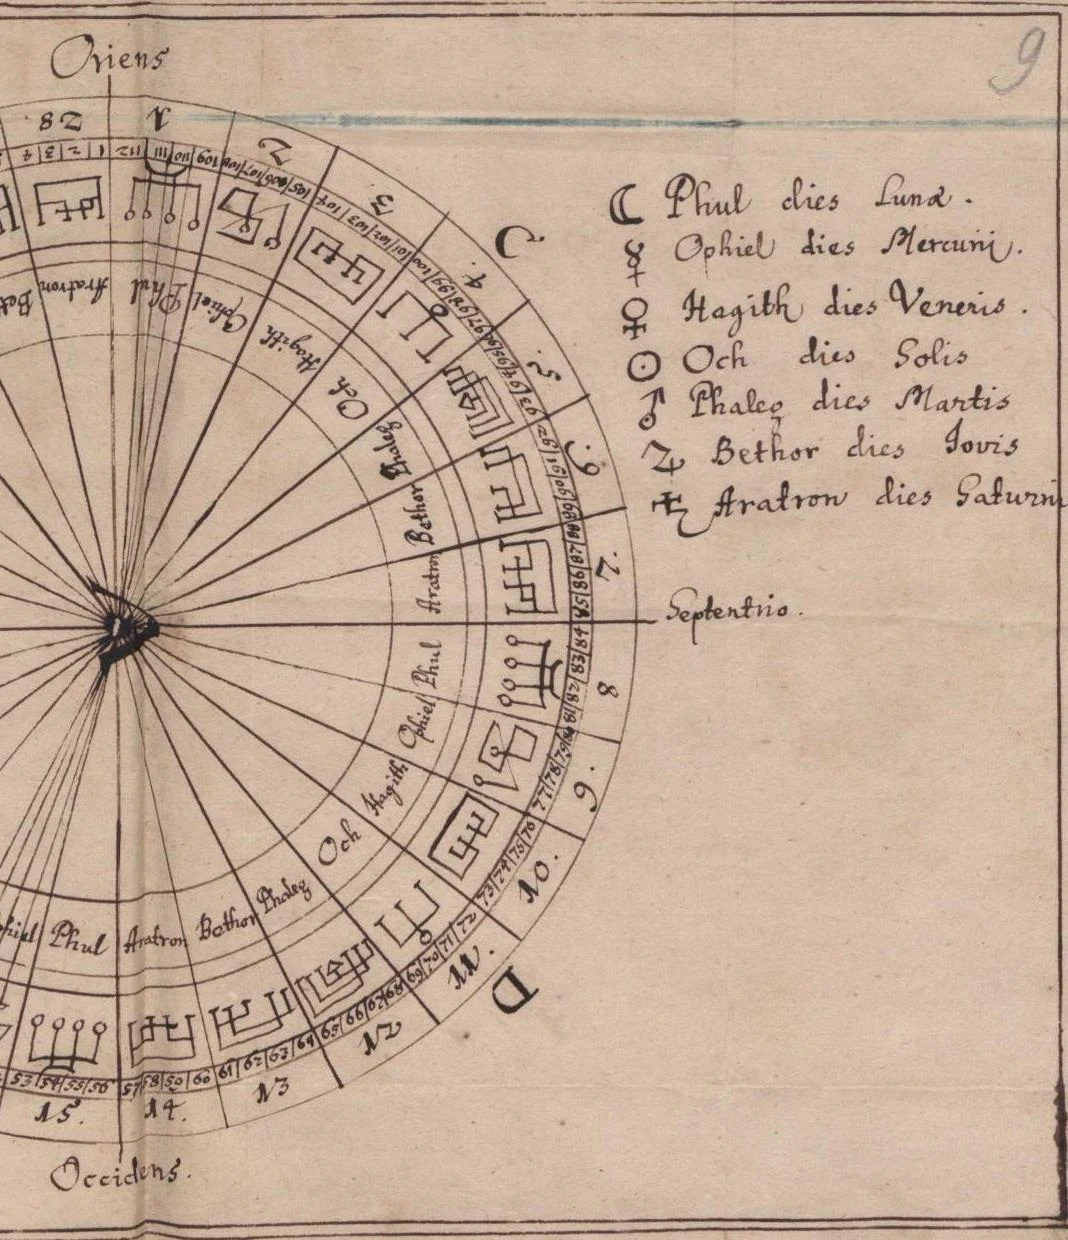 Oriens
9
28
1
2
3
C
4
5
6
7
8
9
10.
11.
D
12
13
14.
15.
Aratron
Phul
Ophiel
Hagith
Och
Phaleg
Bethor
Aratron
Phul
Ophiel
Hagith
Och
Phaleg
Bethor
Aratron
Phul
☾ Phul dies Lunæ.
☿ Ophiel dies Mercurij.
♀ Hagith dies Veneris.
☉ Och dies Solis
♂ Phaleg dies Martis
♃ Bethor dies Iovis
♄ Aratron dies Saturni
Septentrio.
4 3 2 1 112 111 110 109 108 107 106 105 104 103 102 101 100 99 98 97 96 95 94 93 92 91 90 89 88 87 86 85 84 83 82 81 80 79 78 77 76 75 74 73 72 71 70 69 68 67 66 65 64 63 62 61 60 59 58 57 56 55 54 53
Occidens.